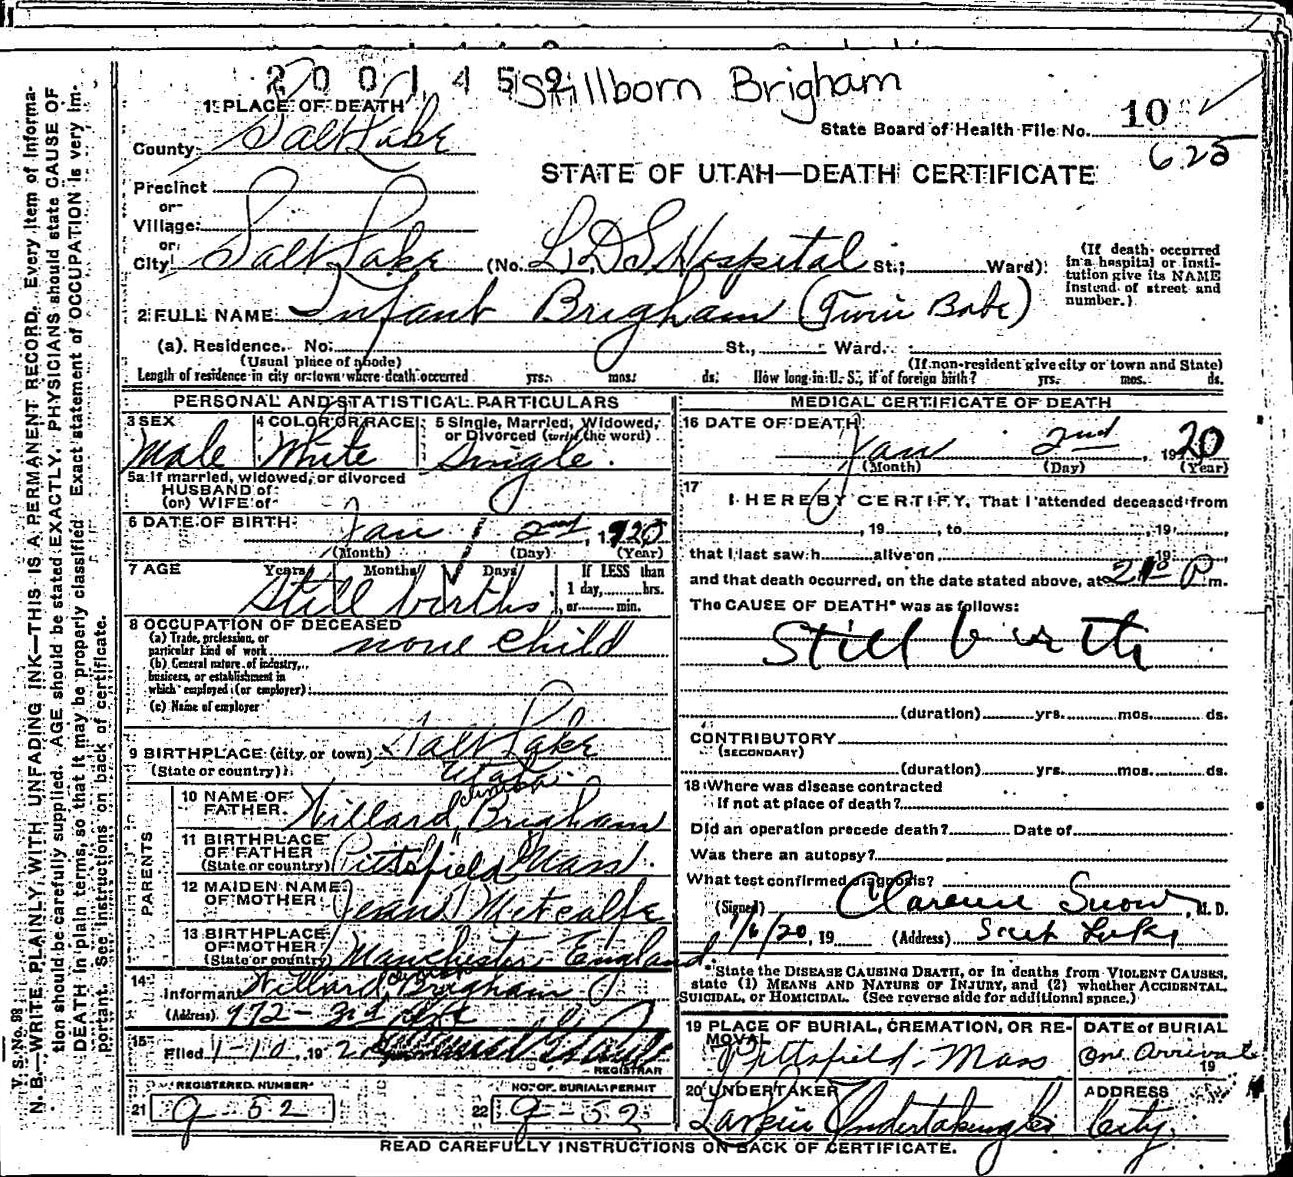 2001452 Stillborn Brigham
1 PLACE OF DEATH
State Board of Health File No. 10
625
County Salt Lake
STATE OF UTAH—DEATH CERTIFICATE
Precinct
or
Village
or
City Salt Lake (No. L.D.S Hospital St.; Ward)
(If death occurred in a hospital or institution give its NAME instead of street and number.)
2 FULL NAME Infant Brigham (Twin Babe)
(a). Residence. No. St., Ward.
(Usual place of abode) (If non-resident give city or town and State)
Length of residence in city or town where death occurred yrs. mos. ds. How long in U. S., if of foreign birth? yrs. mos. ds.
PERSONAL AND STATISTICAL PARTICULARS
3 SEX 4 COLOR OR RACE 5 Single, Married, Widowed, or Divorced (write the word)
Male White Single.
5a If married, widowed, or divorced
HUSBAND of
(or) WIFE of
6 DATE OF BIRTH Jan 2nd, 1920
(Month) (Day) (Year)
7 AGE Years Months Days If LESS than 1 day, hrs. or min.
Still births
8 OCCUPATION OF DECEASED
(a) Trade, profession, or particular kind of work none child
(b) General nature of industry, business, or establishment in which employed (or employer)
(c) Name of employer
9 BIRTHPLACE (city or town) Salt Lake
(State or country) Utah
PARENTS
10 NAME OF FATHER Willard Brigham
11 BIRTHPLACE OF FATHER (State or country) Pittsfield Mass.
12 MAIDEN NAME OF MOTHER Jean Metcalfe
13 BIRTHPLACE OF MOTHER (State or country) Manchester, England
14 Informant Willard Brigham
(Address) 972 - 3rd
15 Filed 1-10, 192
REGISTRAR
REGISTERED NUMBER NO. OF BURIAL PERMIT
21 9-52 22 9-52
MEDICAL CERTIFICATE OF DEATH
16 DATE OF DEATH
Jan 2nd, 1920
(Month) (Day) (Year)
17 I HEREBY CERTIFY, That I attended deceased from
, 19 , to , 19 ,
that I last saw h alive on , 19
and that death occurred, on the date stated above, at P m.
The CAUSE OF DEATH* was as follows:
Still birth
(duration) yrs. mos. ds.
CONTRIBUTORY
(SECONDARY)
(duration) yrs. mos. ds.
18 Where was disease contracted
if not at place of death?
Did an operation precede death? Date of
Was there an autopsy?
What test confirmed diagnosis?
(Signed) Clarence Snow, M. D.
1/6/20, 19 (Address) Salt Lake
*State the DISEASE CAUSING DEATH, or in deaths from VIOLENT CAUSES,
state (1) MEANS AND NATURE OF INJURY, and (2) whether ACCIDENTAL,
SUICIDAL, or HOMICIDAL. (See reverse side for additional space.)
19 PLACE OF BURIAL, CREMATION, OR REMOVAL DATE OF BURIAL
Pittsfield - Mass On Arrival
19
20 UNDERTAKER ADDRESS
Larkin Undertaking Co City
READ CAREFULLY INSTRUCTIONS ON BACK OF CERTIFICATE.
V. S. No. 98
N. B.—WRITE PLAINLY, WITH UNFADING INK—THIS IS A PERMANENT RECORD. Every item of information should be carefully supplied. AGE should be stated EXACTLY. PHYSICIANS should state CAUSE OF DEATH in plain terms, so that it may be properly classified. Exact statement of OCCUPATION is very important. See instructions on back of certificate.